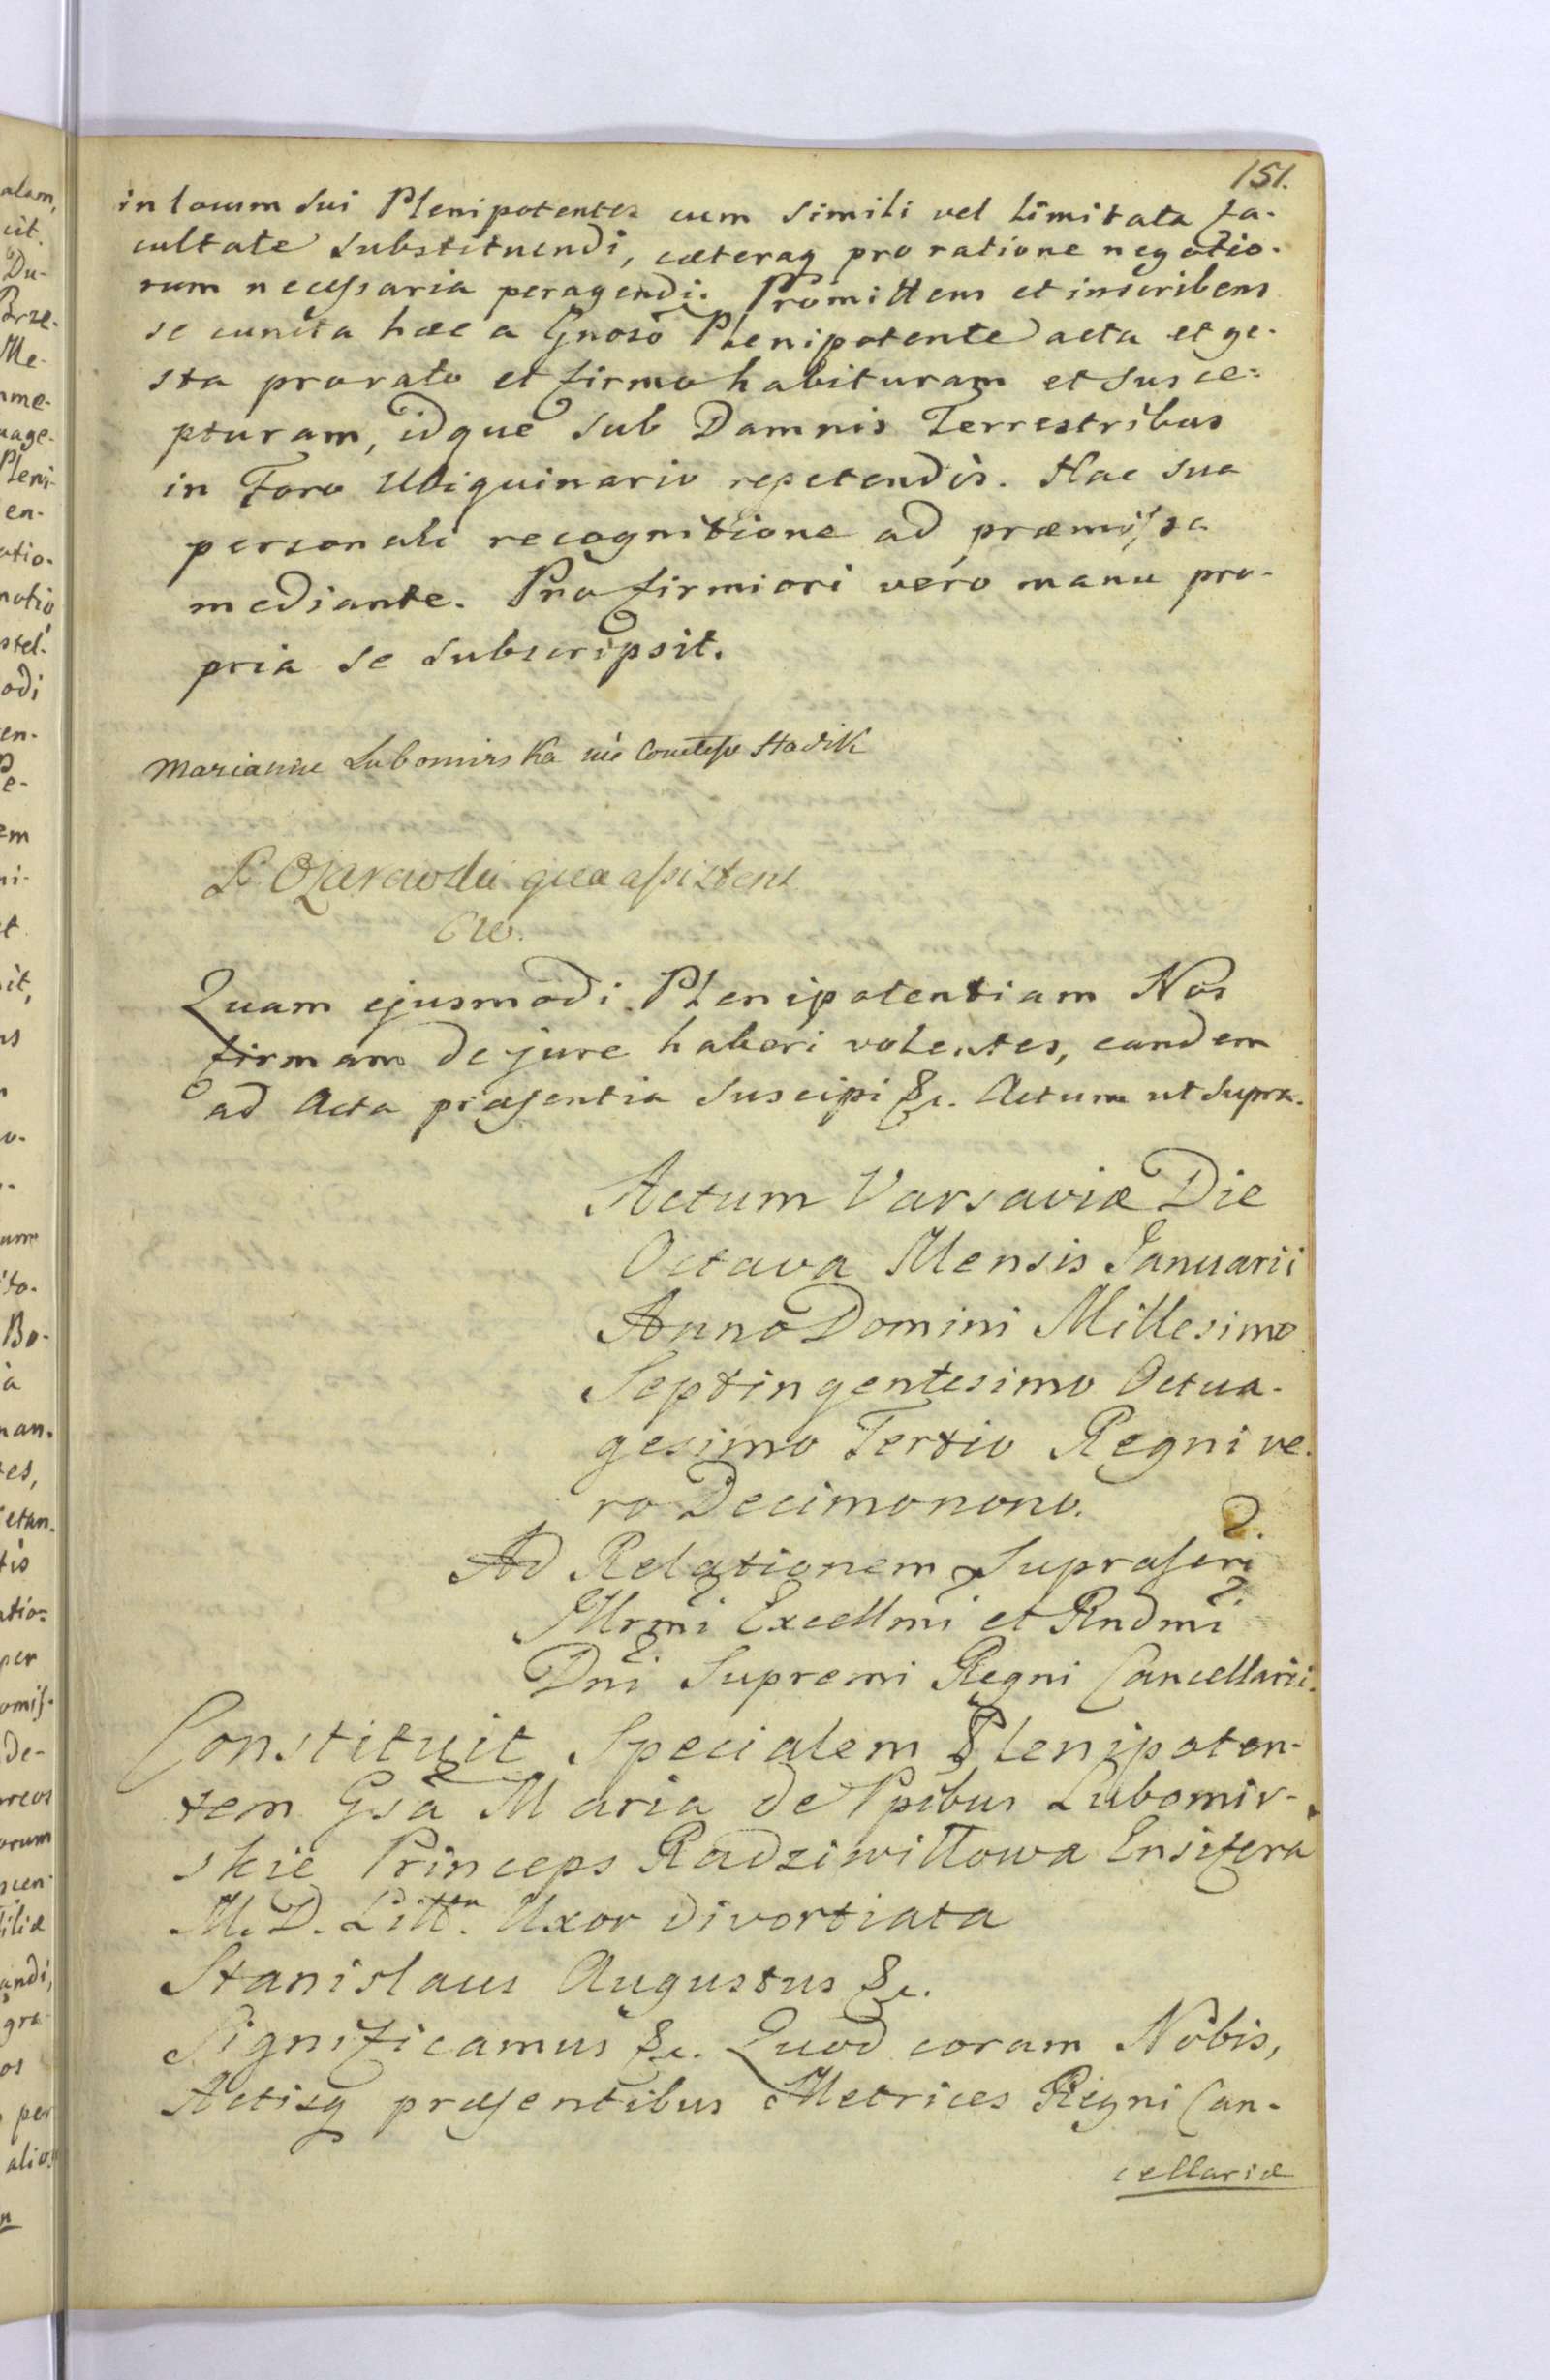 151.
in locum sui Plenipotentes cum simili vel limitata fa-
cultate substituendi, cæteraq pro ratione negotio-
rum necessaria peragendi. Promittens et inscribens
se cuncta hæc a Gnoso Plenipotente acta et ge-
sta pro rato et firmo habituram et susce-
pturam, idque sub Damnis Terrestribus
in Foro Ubiquinario repetendis. Hac sua
personali recognitione ad præmissa
mediante. Pro firmiori vero manu pro-
pria se subscripsit.
Marianne Lubomirska née Comtesse Hadik
Ożarowski qua assistens
Quam ejusmodi Plenipotentiam Nos
firmam de jure haberi volentes, eandem
ad Acta præsentia suscipi &c. Actum ut supra.
Actum Varsaviæ Die
Octava Mensis Januarii
Anno Domini Millesimo
Septingentesimo Octua-
gesimo Tertio Regni ve-
ro Decimonono.
Ad Relationem Suprascri
Illrmi Excellmi et Rndmi
Dni Supremi Regni Cancellarii.
Constituit Specialem Plenipoten-
tem Gsa Maria de Ppibus Lubomir-
skie Princeps Radziwiłłowa Ensifera
M. D. Litt. Uxor divortiata
Stanislaus Augustus &c.
Significamus &c. Quod coram Nobis,
Actisq præsentibus Metrices Regni Can-
cellariæ
alam,
cit.
Du-
Brze-
Me-
mme-
Pleni-
en-
atio-
stel-
odi
en-
e-
em
ni-
it,
Bo-
à
man-
tes,
tis
atio=
per
omis-
de-
orum
andi,
gra-
os
per